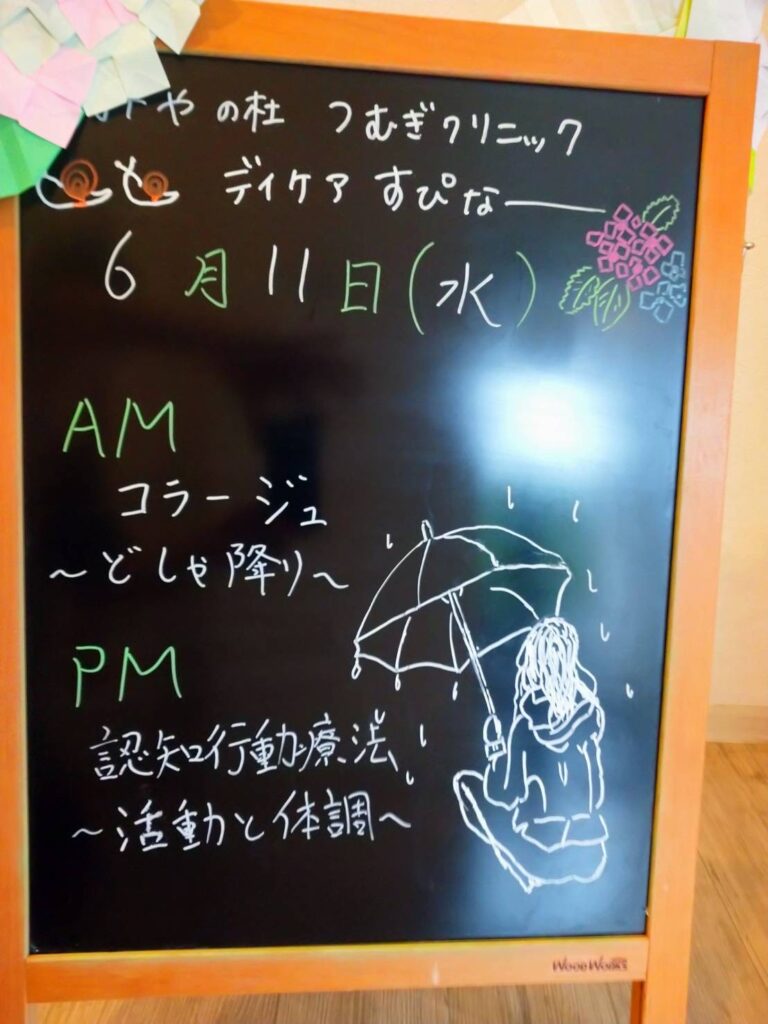 やの杜 つむぎクリニック
デイケア すぴなー
6月11日(水)
AM
コラージュ
～どしゃ降り～
PM
認知行動療法
～活動と体調～
WOOD WORKS